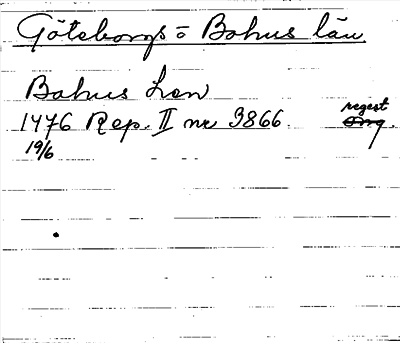 Göteborgs = Bohus län
Bohus Len
1476 Rep. II nr 3866. regest
19/6